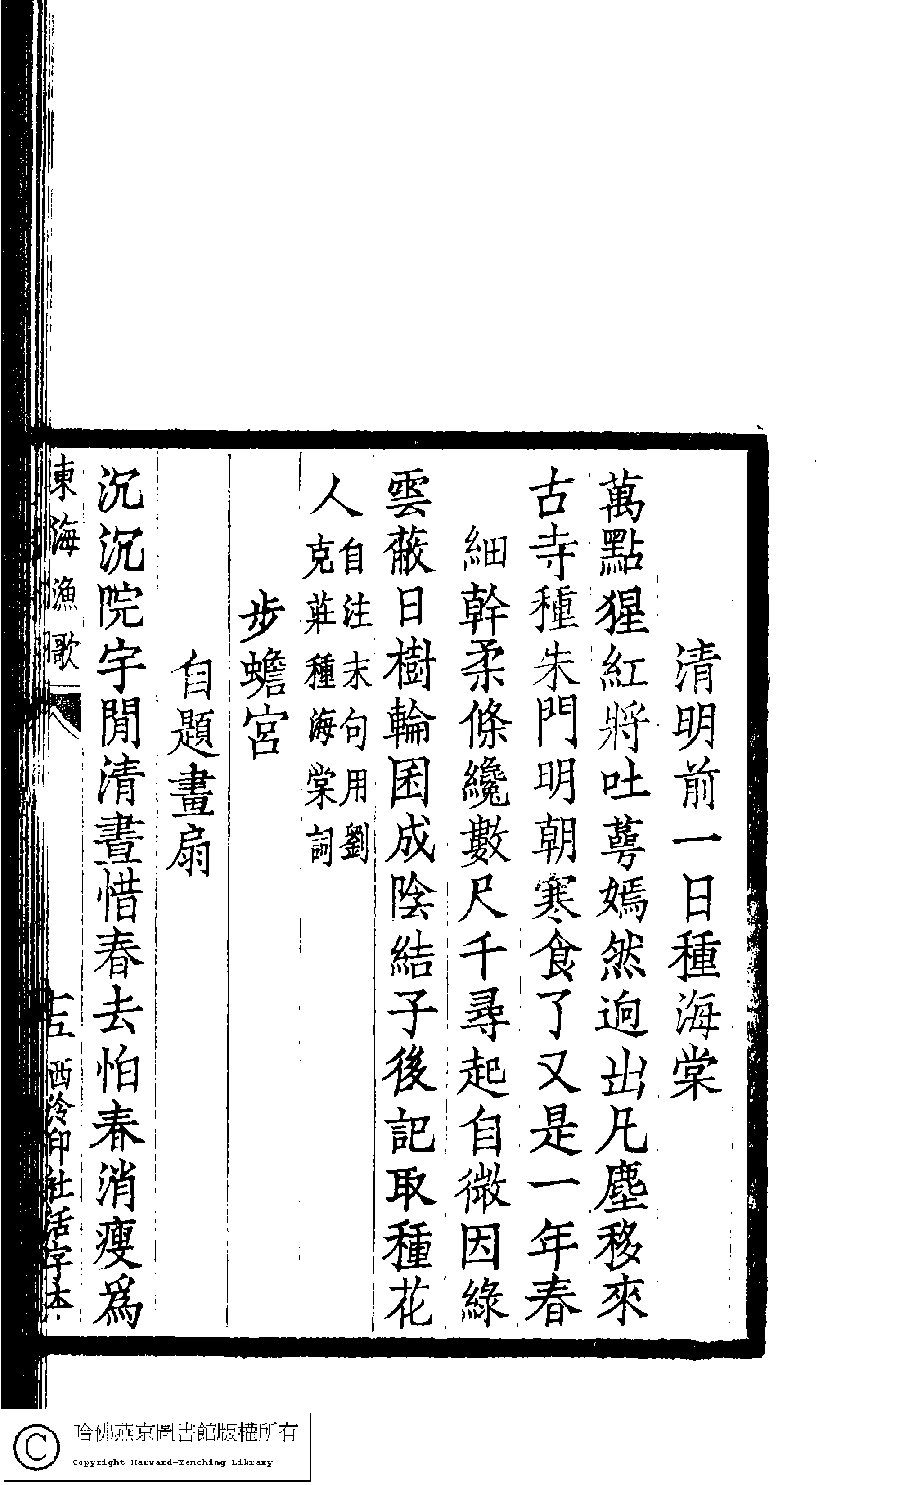 清明前一日種海棠
萬點猩紅將吐萼嫣然逈出凡塵移來
古寺種朱門明朝寒食了又是一年春
細幹柔條纔數尺千尋起自微因綠
雲蔽日樹輪囷成陰結子後記取種花
人自注末句用劉
克莊種海棠詞
步蟾宮
自題畫扇
沉沉院宇閒清晝惜春去怕春消瘦爲
東海漁歌
西泠印社活字本
哈佛燕京圖書館版權所有
Copyright Harvard-Yenching Library